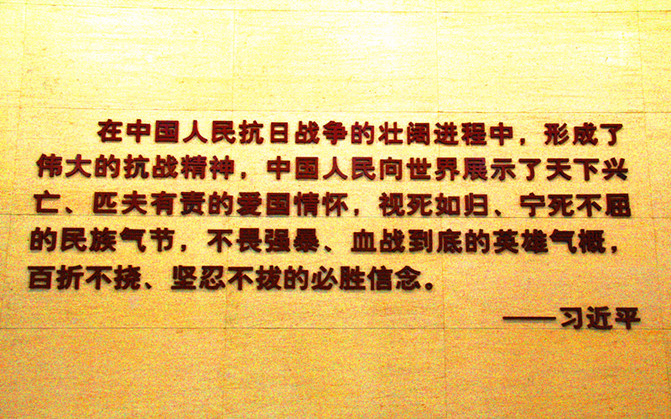 在中国人民抗日战争的壮阔进程中，形成了
伟大的抗战精神，中国人民向世界展示了天下兴
亡、匹夫有责的爱国情怀，视死如归、宁死不屈
的民族气节，不畏强暴、血战到底的英雄气概，
百折不挠、坚忍不拔的必胜信念。
——习近平